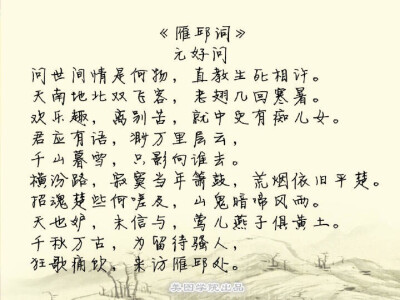 《雁邱词》
元好问
问世间情是何物，直教生死相许。
天南地北双飞客，老翅几回寒暑。
欢乐趣，离别苦，就中更有痴儿女。
君应有语，渺万里层云，
千山暮雪，只影向谁去。
横汾路，寂寞当年箫鼓，荒烟依旧平楚。
招魂楚些何嗟及，山鬼暗啼风雨。
天也妒，未信与，莺儿燕子俱黄土。
千秋万古，为留待骚人，
狂歌痛饮，来访雁邱处。
美图学院出品